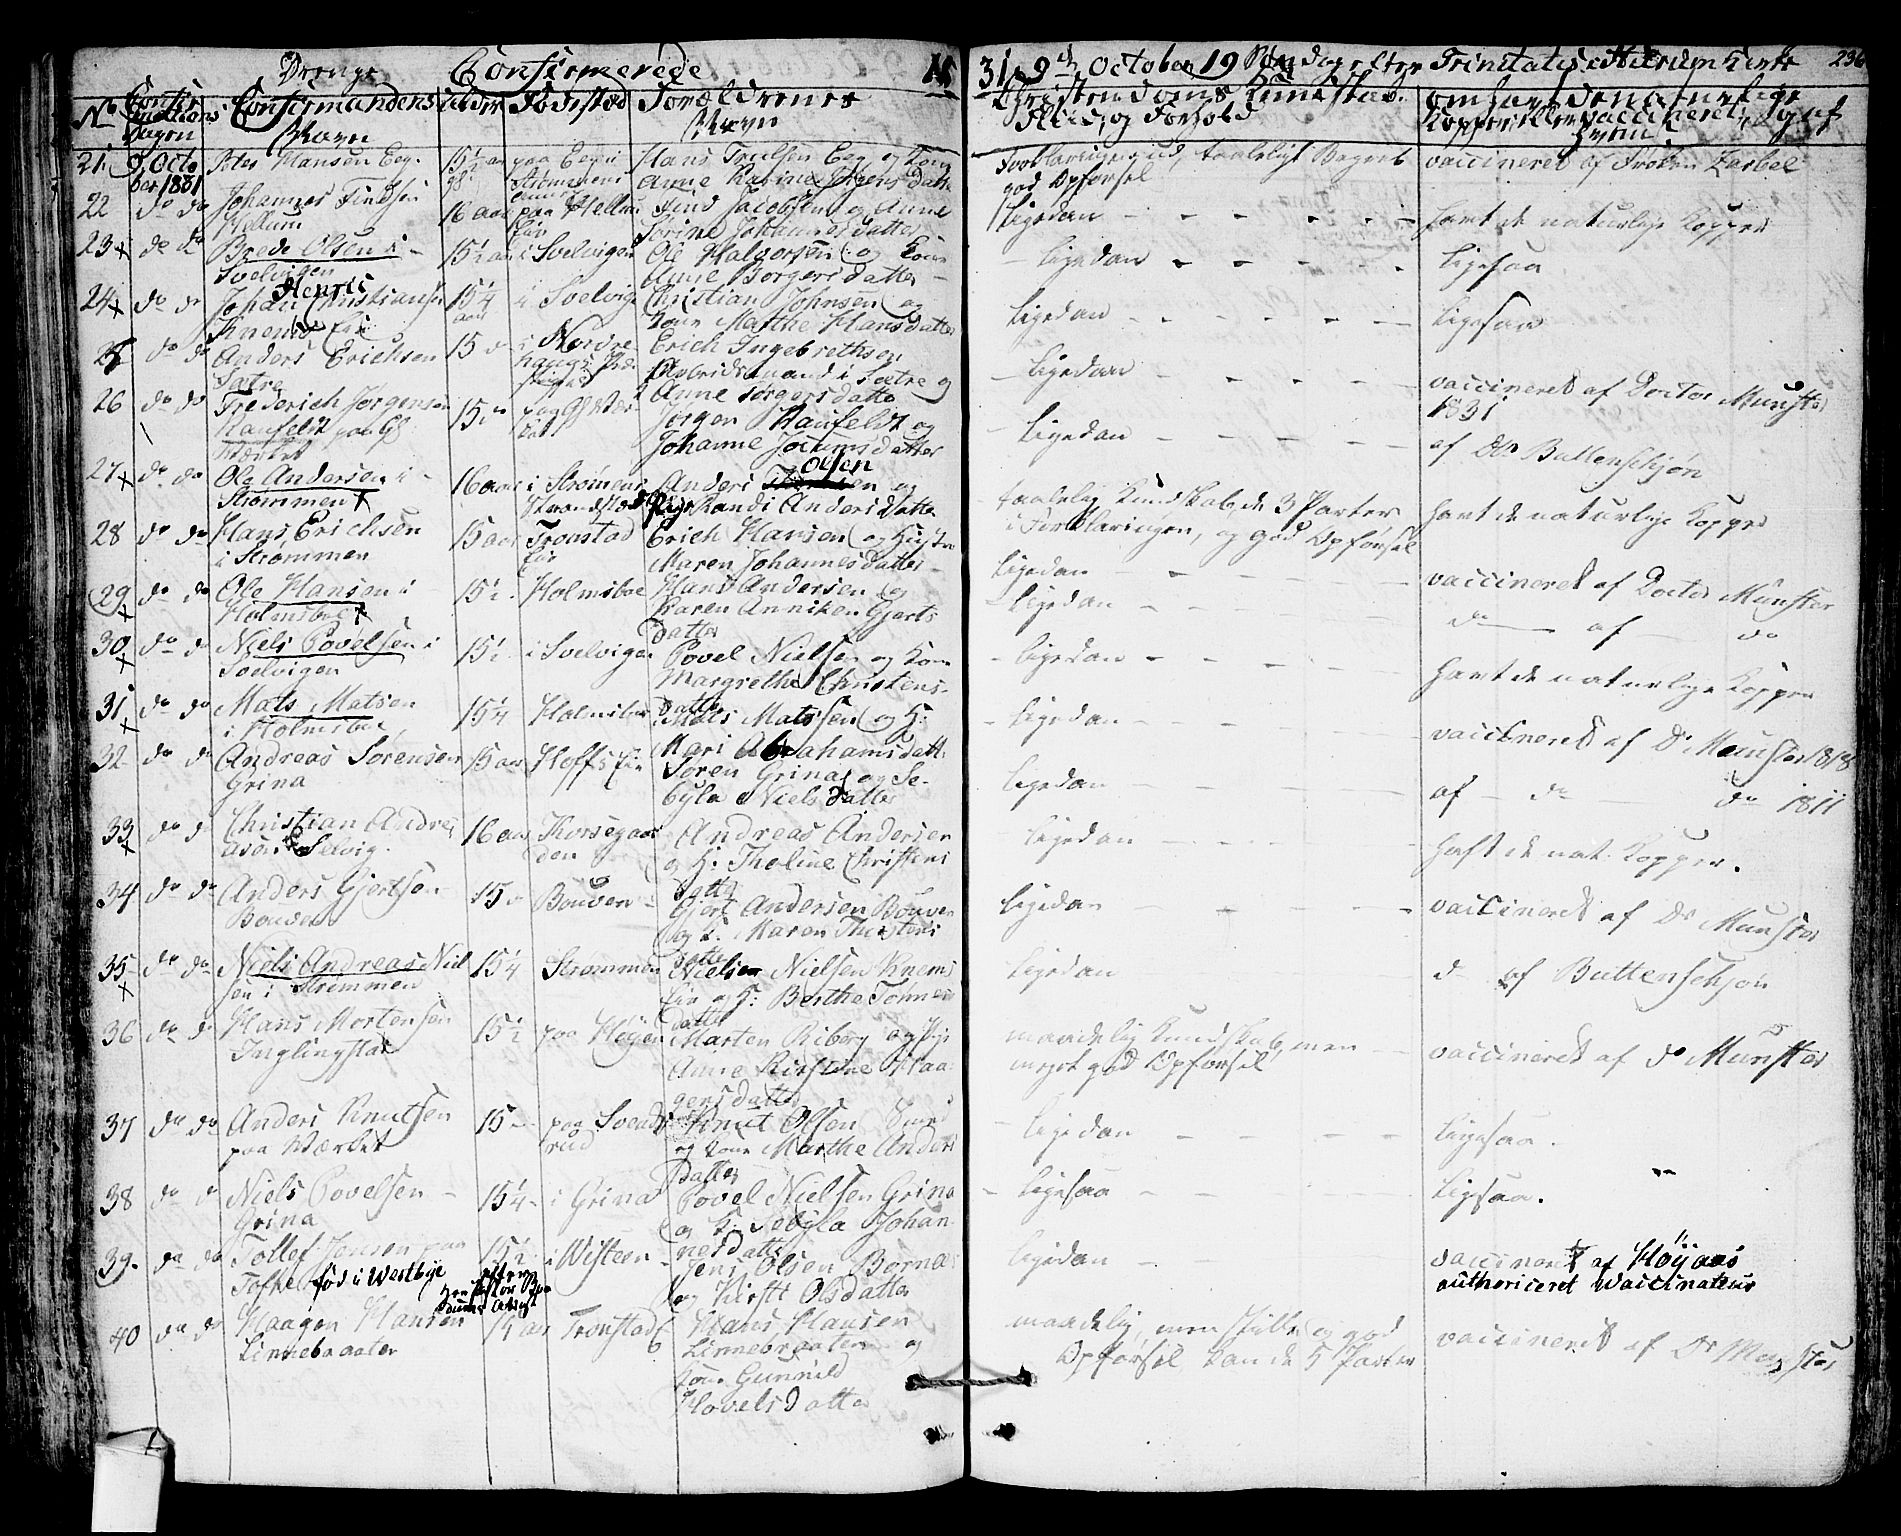 Drenge Confirmerede 18
31. 9de October 19 Søndag efter Trinitatis i Hurum Kirke 236
No Confirmations Dagen Confirmandens Navn Alder Fødestæd Forældrenes Navn
Christendoms Kundskab. Fliid, og Forhold
om havt de naturlige Kopper eller vaccineret, og af hvem
21. 9 October 1831 Peter Hansen Eeg. 15½ aar paa Eeg i Strømmens
Hans Trulsen Eeg og Kone Anne Karine Jørgens Datter
Forklaringe gud, taaleligt Begreb god Opførsel
vaccineret af Frøken Zarbel
22 do do Johannes Findsen Hellum 16 aar paa Hellum Eie
Find Jacobsen og Anne Sørine Johannes Datter
Ligedan - - - - - -
havt de naturlige Kopper
23 x do do Brede Olsen i Svelvigen 15½ aar i Svelvigen
Ole Halgorsen og Kone Anne Børgers Datter
Ligedan - - - -
Ligesaa
24 x do do Johan Henric Christiansen Knems Eie 15¼ aar i Svelvig
Christian Johnsen og Kone Marthe Hans datter
Ligedan - - - - - -
Ligesaa
25 do do Anders Erichsen Sætre 15 i Nordrehaugs
Erich Ingebrethsen Arbeidsmand i Sætre og Anne Jørgers datter
Ligedan - - - -
vaccineret af Doctor Munster 1831
26 do do Frederich Jørgensen Haufeldt paa 15
Jørgen Haufeldt og Johanne Jocums datter
Ligedan - - - -
af Dr Buttenschjøn
27 x do do Ole Andersen i Strømmen x 16 aar i Strømens Strandstæd
Anders Olsen og Pige Randi Anders Datter
taalelig Kundskab, de 3 Parter i Forklaringen, og god Opførsel
havt de naturlige Kopper
28 do do Hans Erichsen i Strømmen 15 aar Tronstad Eie
Erich Hansen og Hustru Maren Johannes datter
Ligedan - - - -
vaccineret af Doctor Munster
29 x do do Ole Hansen i Holmsboe x 15½ Holmsboe
Hans Andersen og Karen Anniken Gjerts Datter
Ligedan - - - -
do af do
30 x do do Niels Povelsen i Svelvigen 15½ - i Svelvigen
Povel Nielsen og Kone Margrethe Christens datter
Ligedan - - - -
havt de naturlige Kopper
31 x do do Mats Matsen i Holmsboe 15¼ Holmsboe
Mats Matssen og H: Mari Abrahams datt:
Ligedan - - - -
vaccineret af Dr Munster 1818
32 do do Andreas Sørensen Grina 15 aar Hoffs Eie
Søren Grina og Sebyla Niels datter
Ligedan - - - -
af - do - do 1811
33 x do do Christian Andreasen Selvig 16 aar Korsegaarden
Andreas Andersen og H: Theline Christens Datter
Ligedan - - - -
haft de nat: Kopper.
34 do do Anders Gjertsen Bouven 15 Bouven
Gjert Andersen Bouven og K. Maren Thostens datter
Ligedan - - - -
vaccineret af Dr Munster
35 x do do Niels Andreas Nielsen i Strømmen 15¼ Strømmen
Nielsen Nielsen Knems Eie og H: Berthe Tønnes datter
Ligedan
do af Buttenschjøn
36 do do Hans Mortensen Inglingstad 15½ paa Høyen
Marten Riberg og Pige Anne Kirstine Haagens datter
maadelig Kundskab, men meget god Opførsel
vaccineret af Dr Münster
37 do do Anders Knutsen paa Værket 15 - paa Svendsrud
Knut Olsen og Kone Marthe Anders Datter
Ligedan - - - -
Ligesaa.
38 do do Niels Povelsen Grina 15¼ - i Grina
Povel Nielsen Grina og K: Sebyla Johannes datter
Ligesaa - - - -
Ligesaa.
39. do do Tollef Jensen paa Tofte født i Westbye 15½ i Westeen
Jens Olsen Bornæs og Kirsti Ols datter
Ligedan -
vaccineret af Höÿaas authoriceret Vaccinateur
40 do do Haagen Hansen Linnebraaten 14 aar Tronstad
efter Hr Pastor
Hans Hansen Linnebraaten og Kone Gunnild Hovels Datter
maadelig, men stille og god Opførsel kan de 5 Parter
vaccineret af Dr Munster